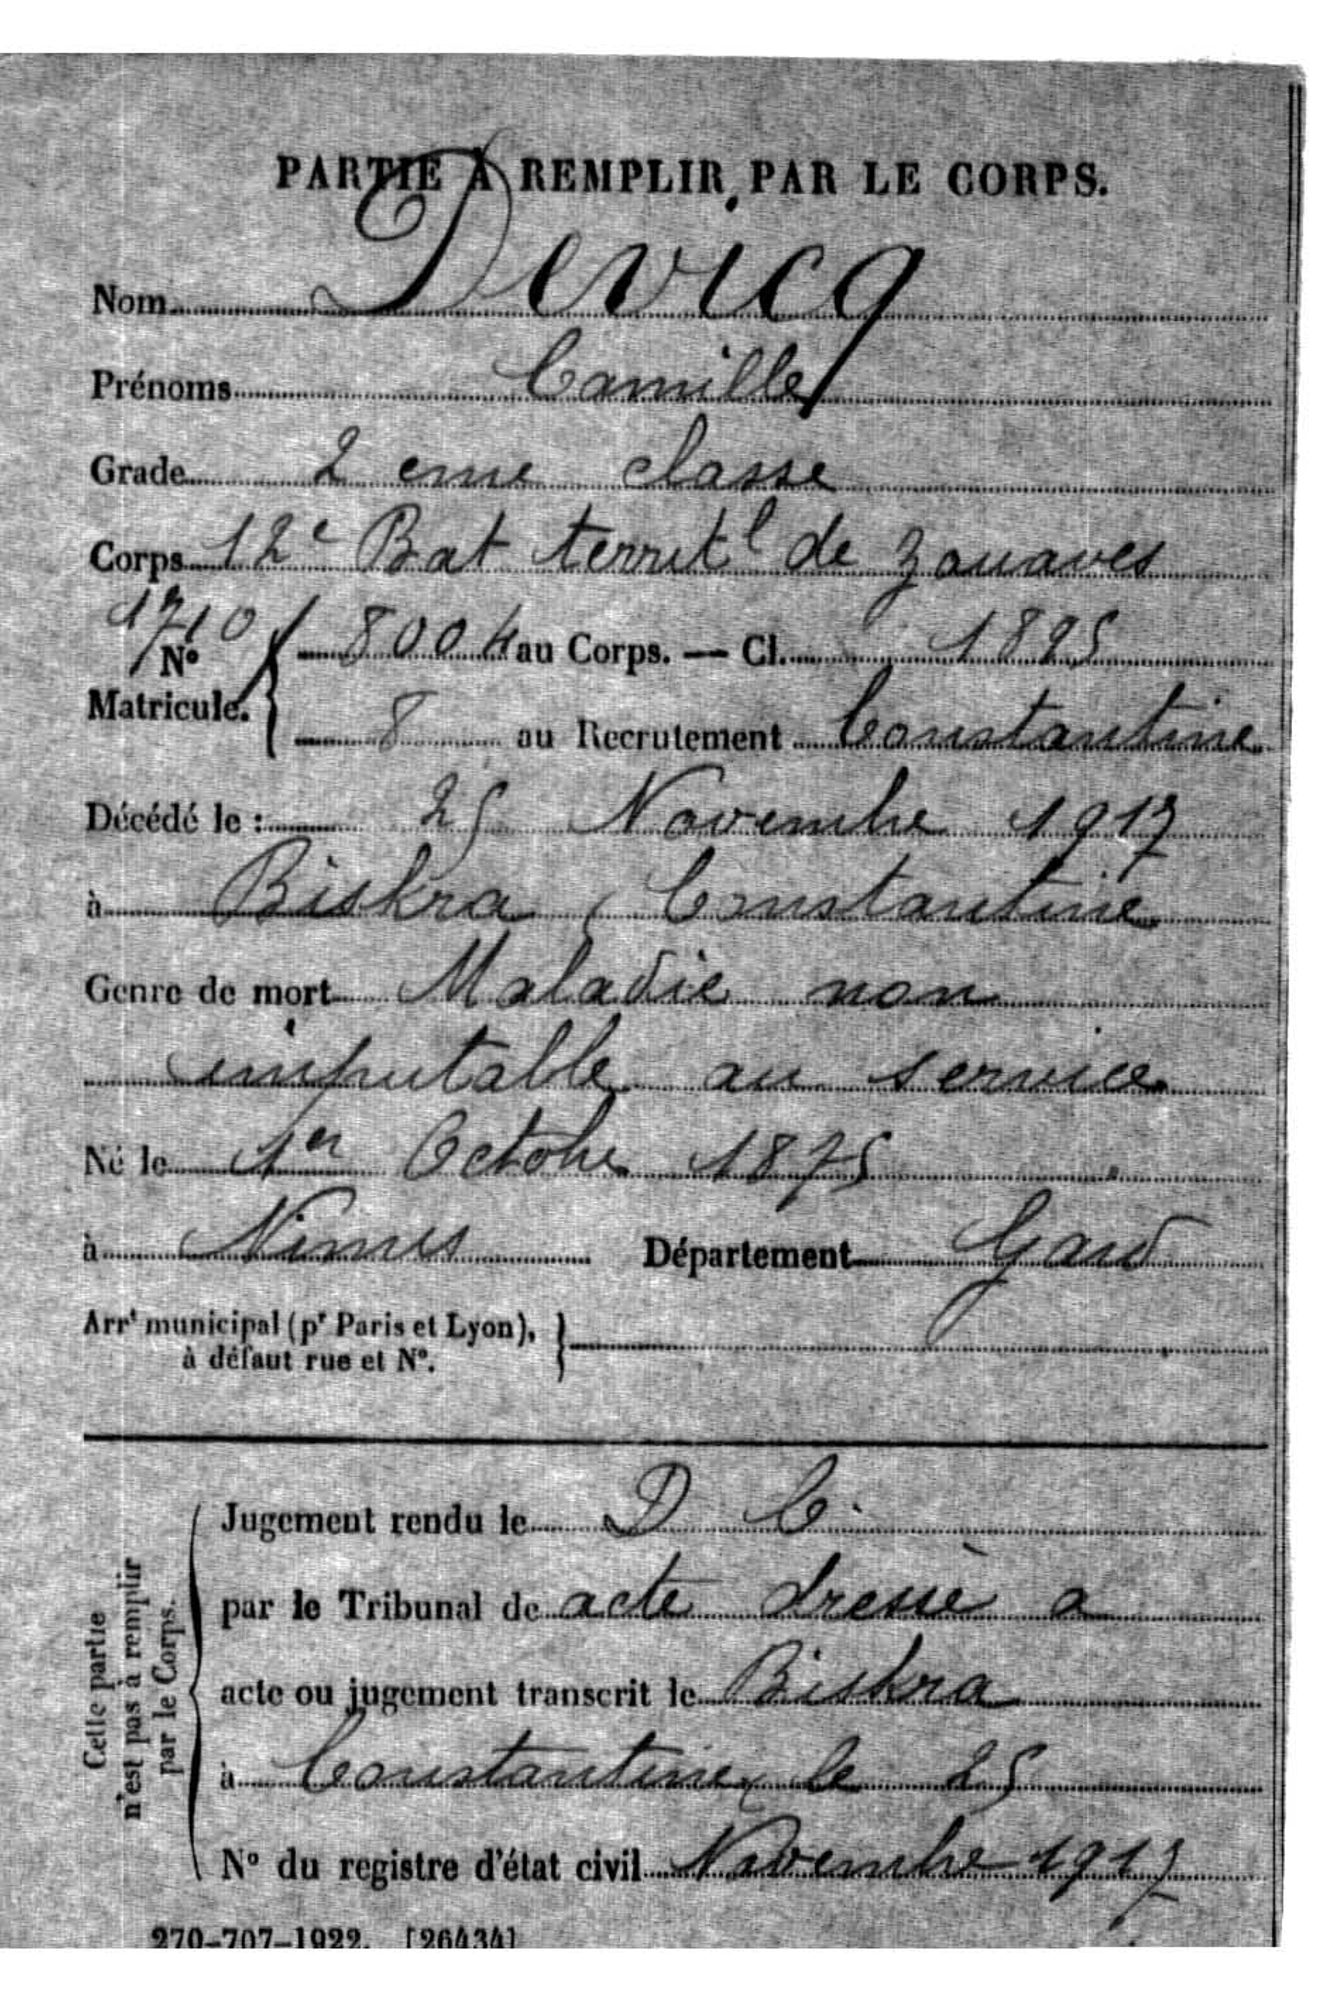 PARTIE À REMPLIR PAR LE CORPS.
Nom Devicq
Prénoms Camille
Grade 2 eme classe
Corps 12e Bat territl de zouaves
1710
N° Matricule. 8004 au Corps. — Cl. 1895
8 au Recrutement Constantine
Décédé le : 25 Novembre 1917
à Biskra, Constantine
Genre de mort Maladie non
imputable au service
Né le 1er Octobre 1875
à Nimes Département Gard
Arrt municipal (pr Paris et Lyon),
à défaut rue et N°.
Cette partie
n'est pas à remplir
par le Corps.
Jugement rendu le D C.
par le Tribunal de acte dressè a
acte ou jugement transcrit le Biskra
à Constantine, le 25
N° du registre d'état civil Novembre 1917
270-707-1922. [26434]